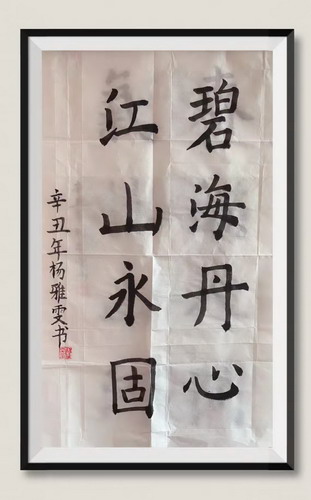 碧海丹心
江山永固
辛丑年杨雅雯书